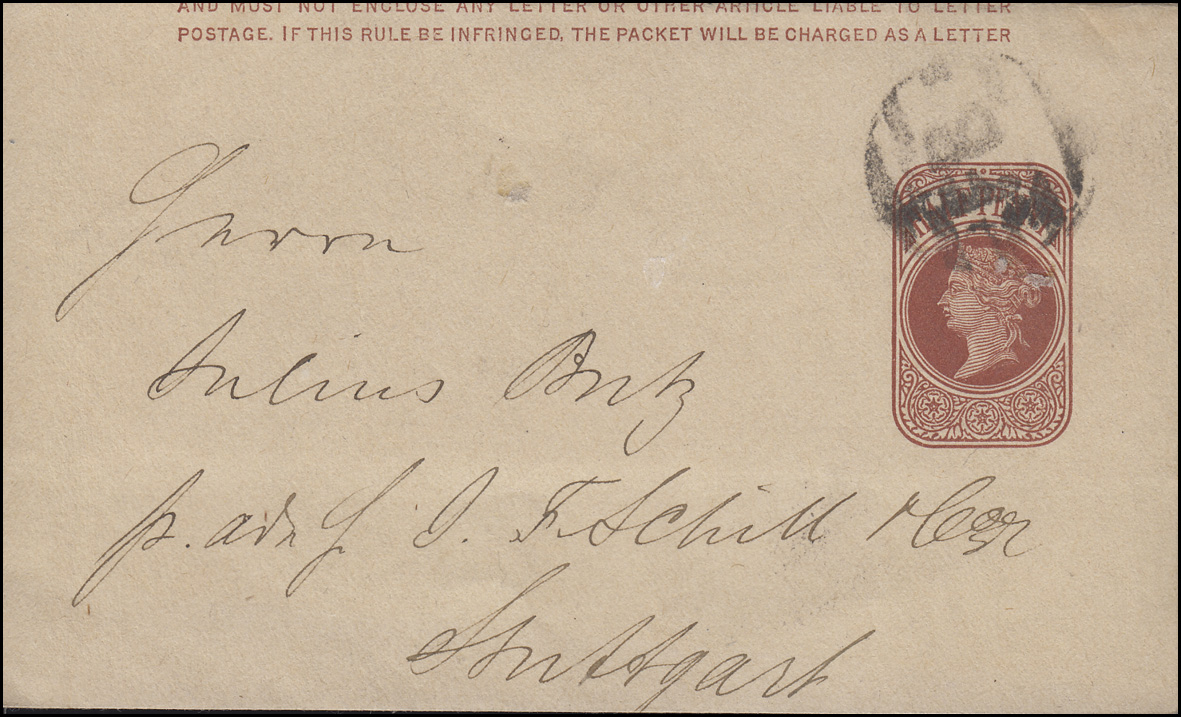 AND MUST NOT ENCLOSE ANY LETTER OR OTHER ARTICLE LIABLE TO LETTER
POSTAGE. IF THIS RULE BE INFRINGED, THE PACKET WILL BE CHARGED AS A LETTER
HALFPENNY
Herrn
Julius
p. adr. J. F. Schill
Stuttgart